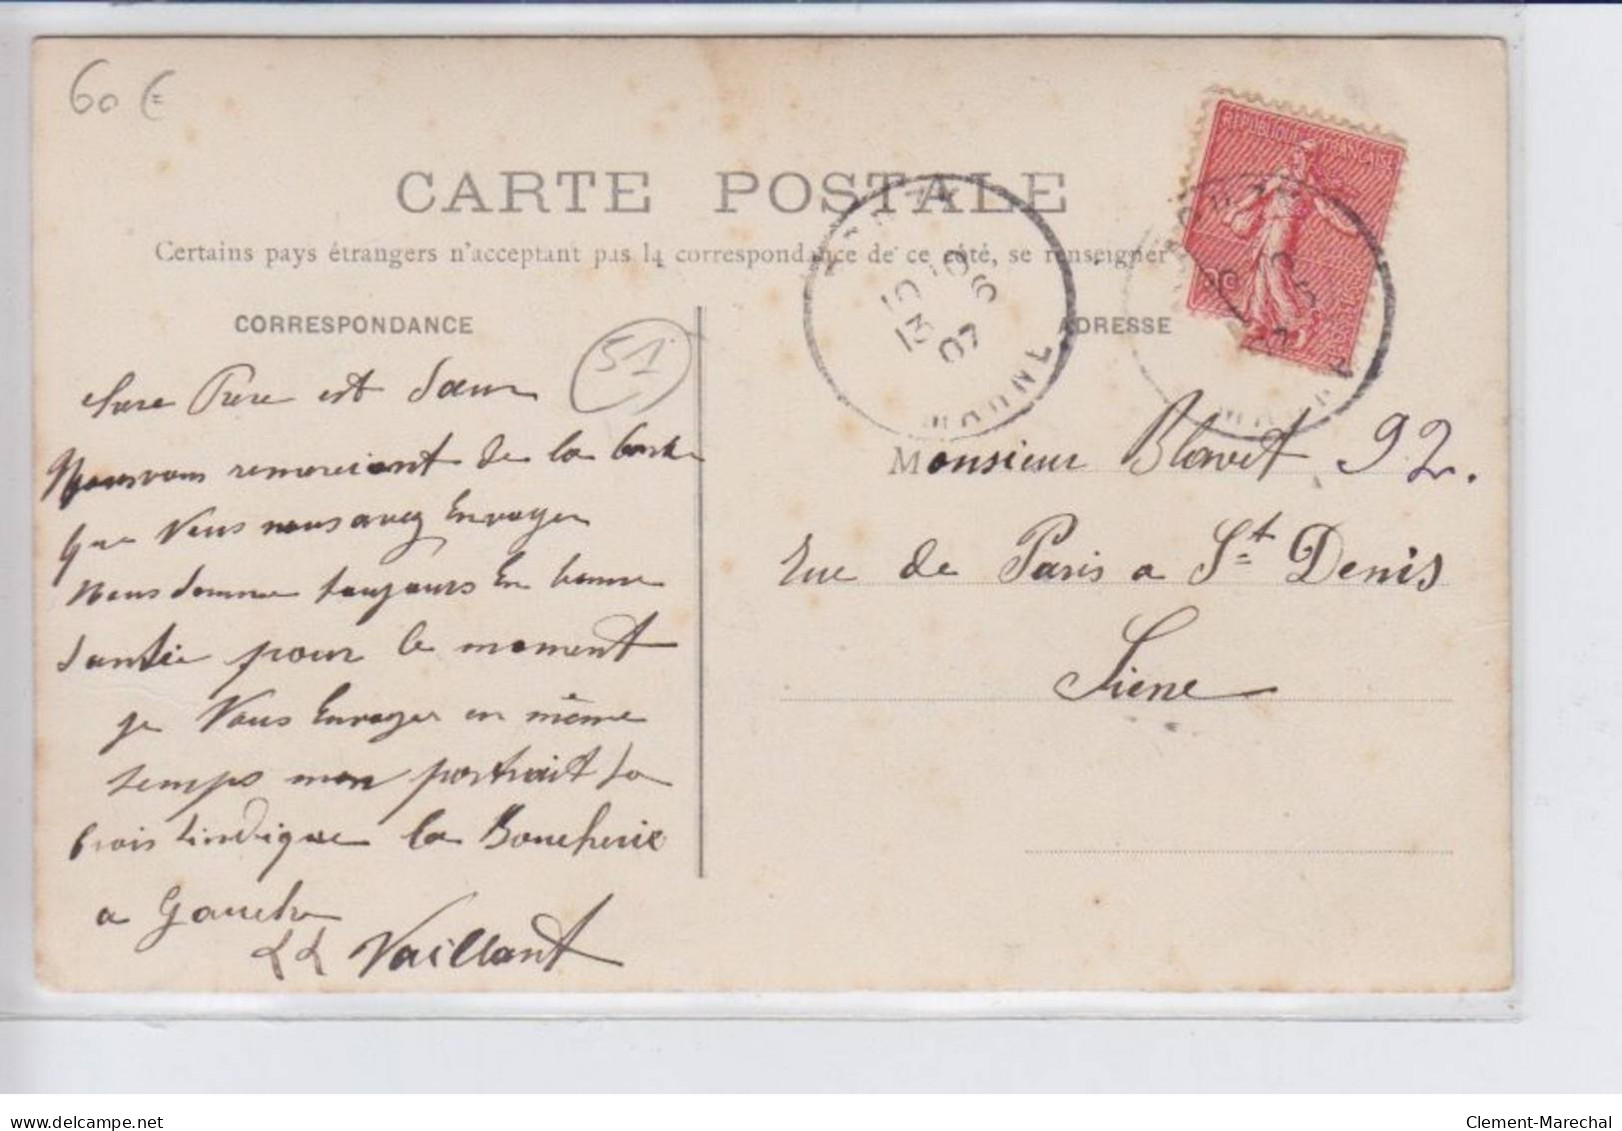 60 €
RÉPUBLIQUE FRANÇAISE
CARTE POSTALE
Certains pays étrangers n'acceptent pas la correspondance de ce côté, se renseigner
10 10
13 6
07
MARNE
CORRESPONDANCE
ADRESSE
51
Chere Frere est Sœur
Nous vous remerciont de la carte
que Vous nous avez Envoyer
Nous somme toujours En bonne
santée pour le moment
je Vous Envoyer en même
temps mon portrait la
crois lindique la Boucherie
a Gauche
Vaillant
Monsieur Blowet 92.
rue de Paris a St Denis
Siene
Clement-Marechal